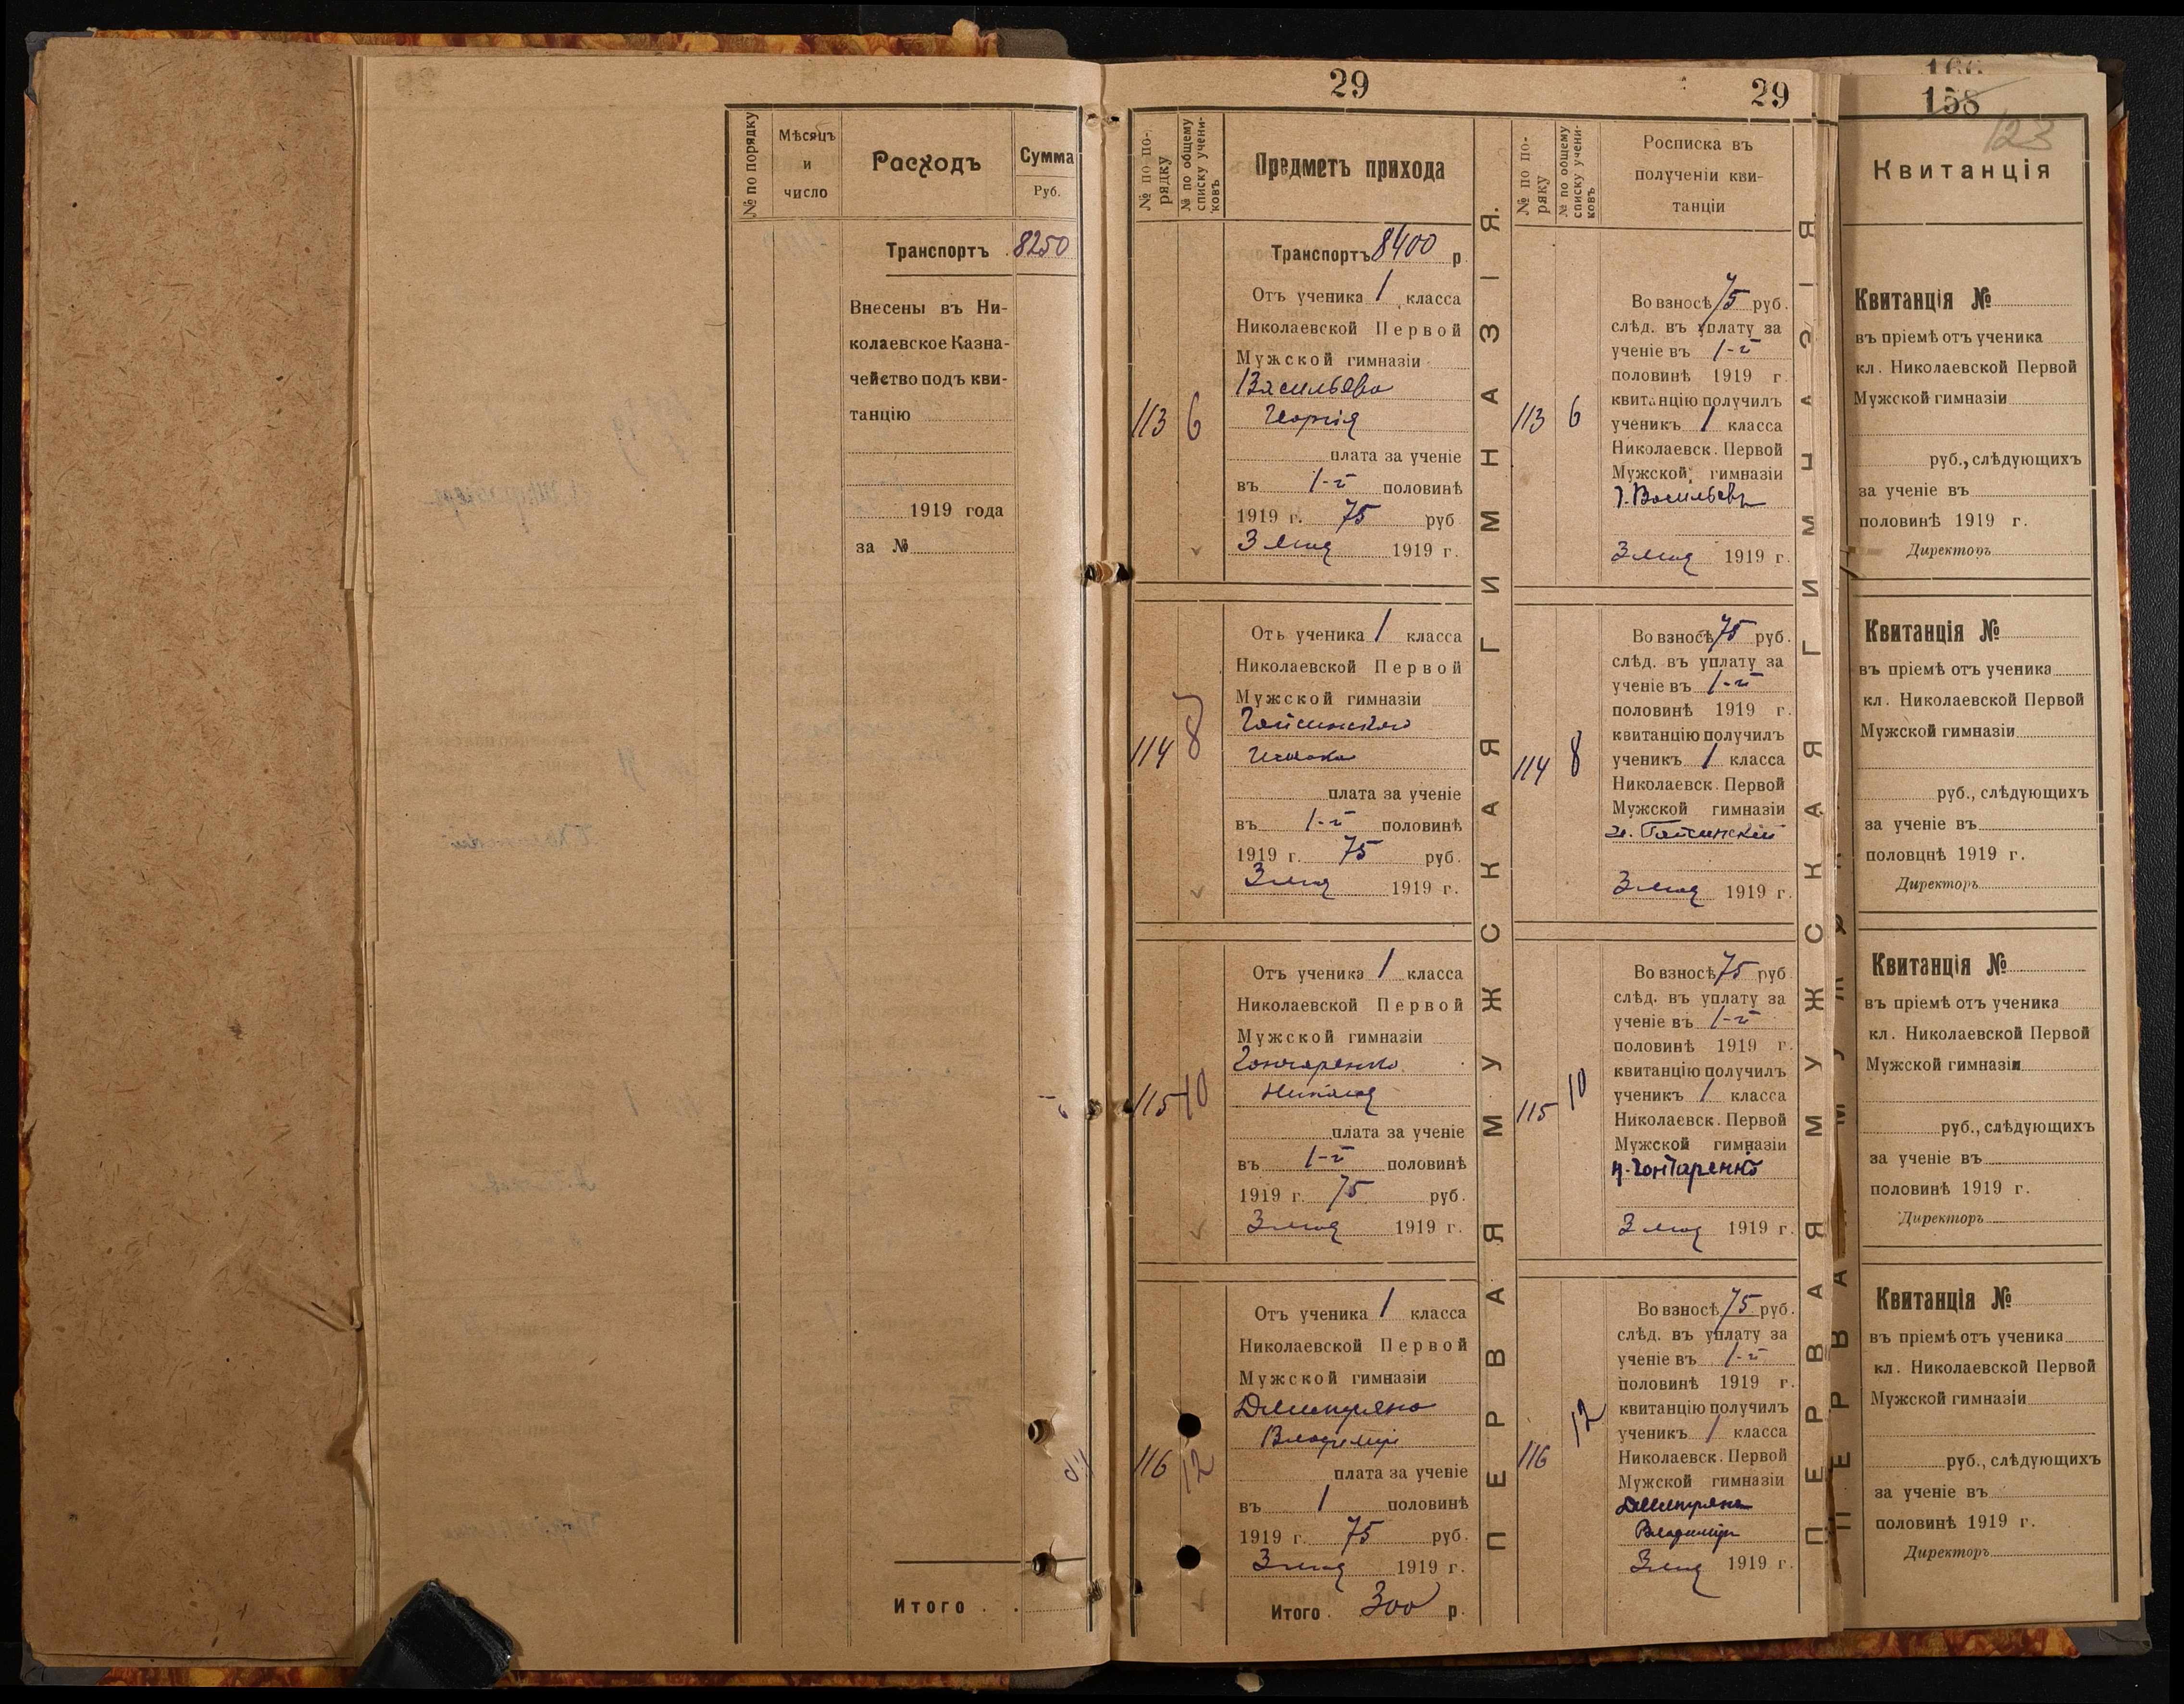 № по порядку
Мѣсяцъ
и
число
Расходъ
Сумма
Руб.
Транспортъ 8250
Внесены въ Ни-
колаевское Казна-
чейство подъ кви-
танцію
1919 года
за №
Итого . .
29
№ по по-
рядку
№ по общему
списку учени-
ковъ
Предметъ прихода
Транспортъ 8400 р.
113
6
Отъ ученика 1 класса
Николаевской Первой
Мужской гимназіи
Васильева
Георгія
плата за ученіе
въ 1-й половинѣ
1919 г. 75 руб
3 мая 1919 г.
114
8
Отъ ученика 1 класса
Николаевской Первой
Мужской гимназіи
Гайсинского
плата за ученіе
въ 1-й половинѣ
1919 г. 75 руб.
3 мая 1919 г.
115
10
Отъ ученика 1 класса
Николаевской Первой
Мужской гимназіи
Гончаренко
Николая
плата за ученіе
въ 1-й половинѣ
1919 г. 75 руб.
3 мая 1919 г.
116
12
Отъ ученика 1 класса
Николаевской Первой
Мужской гимназіи
Димитряно
Владимір
плата за ученіе
въ 1 половинѣ
1919 г. 75 руб.
3 мая 1919 г.
Итого . 300 р.
ПЕРВАЯ МУЖСКАЯ ГИМНАЗІЯ.
29
№ по по-
ряку
№ по общему
списку учени-
ковъ
Росписка въ
полученіи кви-
танціи
113
6
Во взносѣ 75 руб.
слѣд. въ уплату за
ученіе въ 1-й
половинѣ 1919 г.
квитанцію получилъ
ученикъ 1 класса
Николаевск. Первой
Мужской гимназіи
Г. Васильевъ
3 мая 1919 г.
114
8
Во взносѣ 75 руб.
слѣд. въ уплату за
ученіе въ 1-й
половинѣ 1919 г.
квитанцію получилъ
ученикъ 1 класса
Николаевск. Первой
Мужской гимназіи
И. Гайсинскій
3 мая 1919 г.
115
10
Во взносѣ 75 руб.
слѣд. въ уплату за
ученіе въ 1-й
половинѣ 1919 г.
квитанцію получилъ
ученикъ 1 класса
Николаевск. Первой
Мужской гимназіи
Н. Гончаренко
3 мая 1919 г.
116
12
Во взносѣ 75 руб.
слѣд. въ уплату за
ученіе въ 1-й
половинѣ 1919 г.
квитанцію получилъ
ученикъ 1 класса
Николаевск. Первой
Мужской гимназіи
Димитряно
Владиміръ
3 мая 1919 г.
ПЕРВАЯ МУЖСКАЯ ГИМНАЗІЯ
166
158
123
Квитанція
Квитанція №
въ пріемѣ отъ ученика
кл. Николаевской Первой
Мужской гимназіи
руб., слѣдующихъ
за ученіе въ
половинѣ 1919 г.
Директоръ
Квитанція №
въ пріемѣ отъ ученика
кл. Николаевской Первой
Мужской гимназіи
руб., слѣдующихъ
за ученіе въ
половцнѣ 1919 г.
Директоръ
Квитанція №
въ пріемѣ отъ ученика
кл. Николаевской Первой
Мужской гимназіи
руб., слѣдующихъ
за ученіе въ
половинѣ 1919 г.
Директоръ
Квитанція №
въ пріемѣ отъ ученика
кл. Николаевской Первой
Мужской гимназіи
руб., слѣдующихъ
за ученіе въ
половинѣ 1919 г.
Директоръ